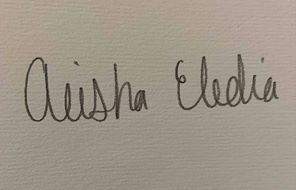 Aeisha Eledia